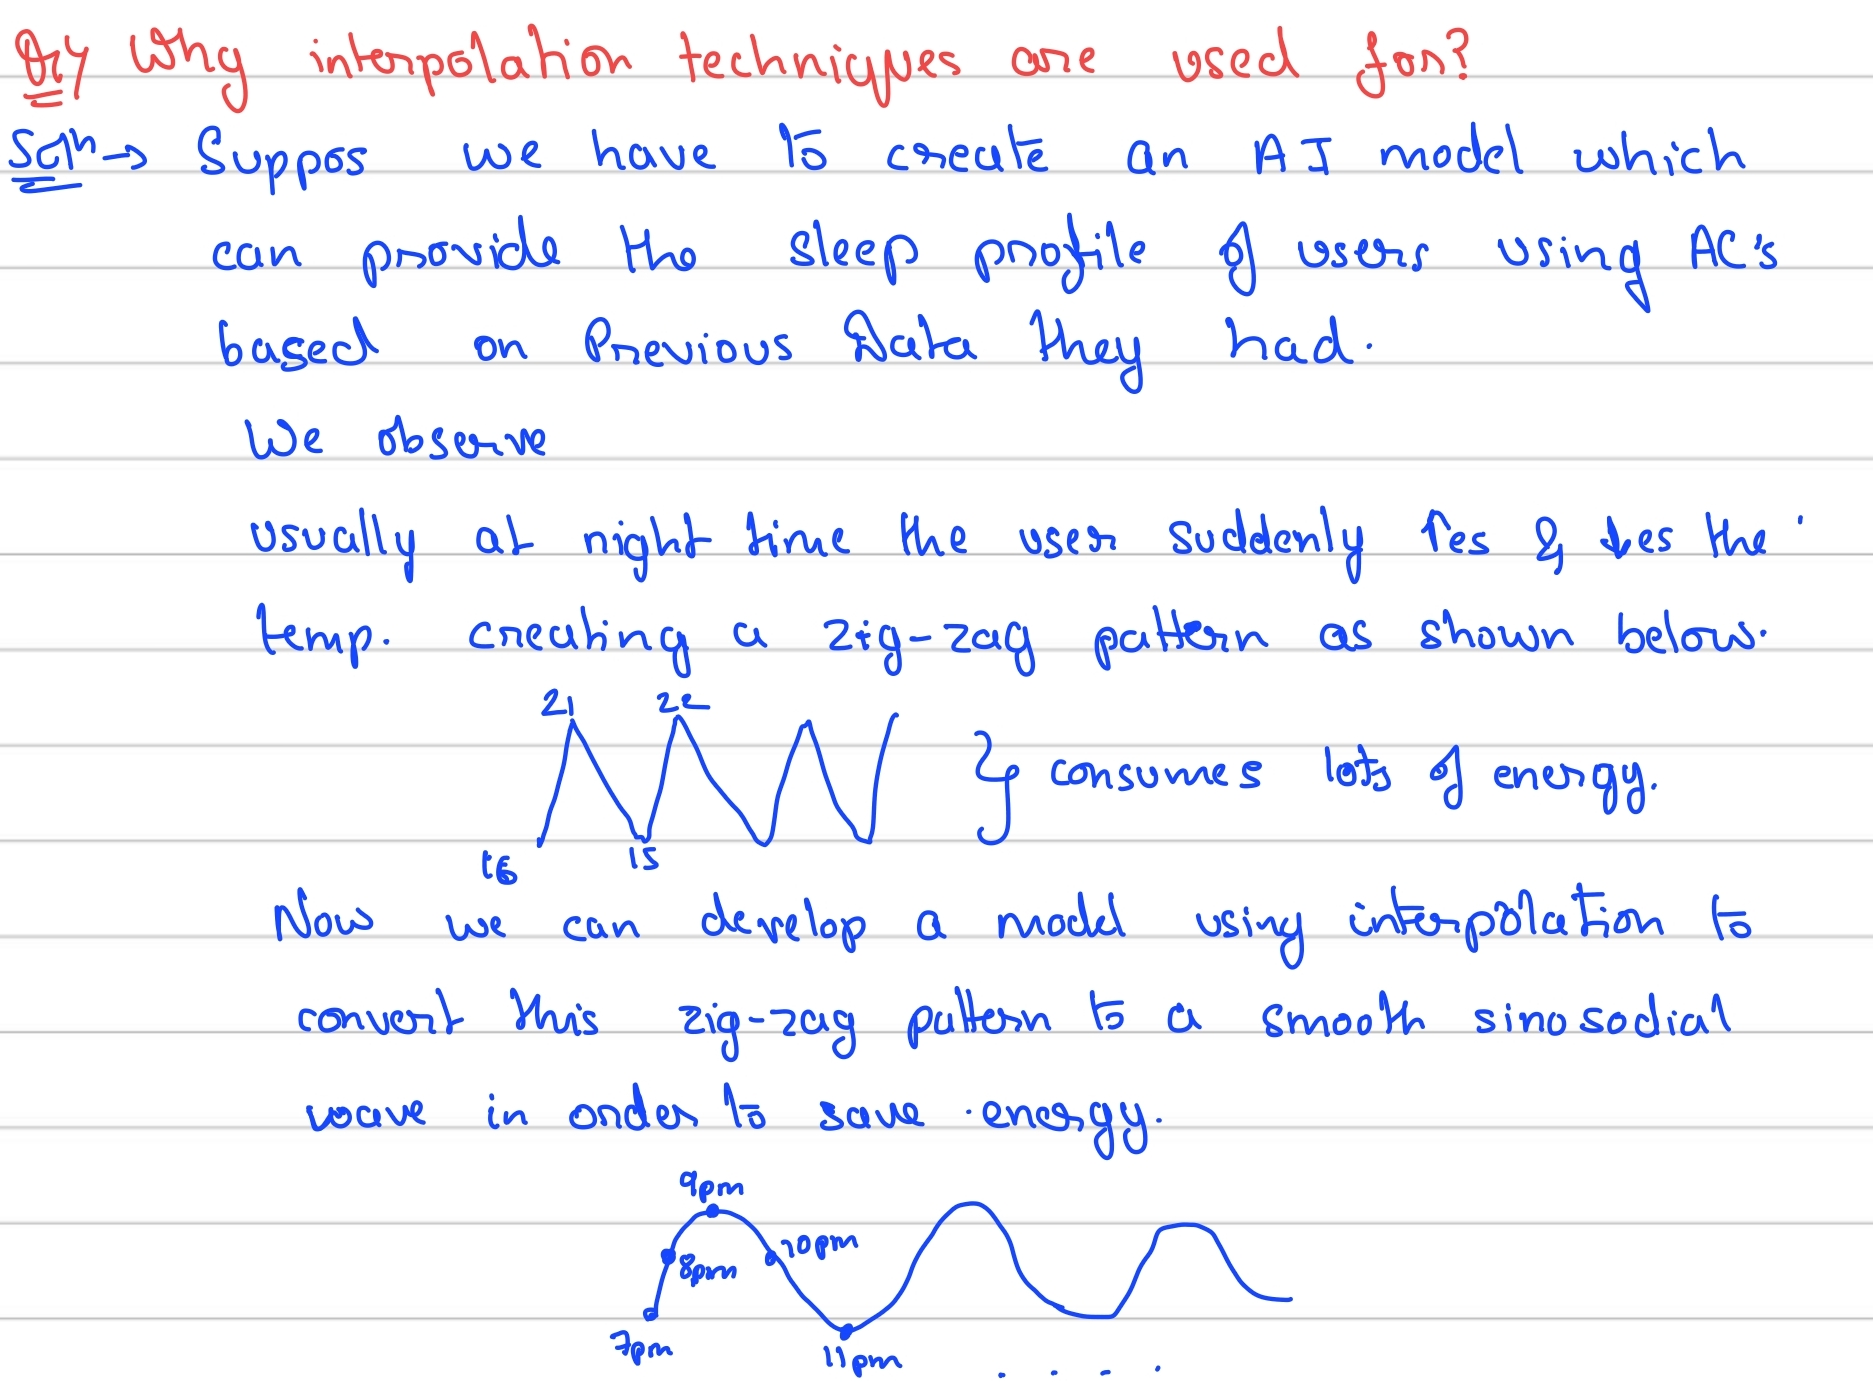 Q1) Why interpolation techniques are used for?
Soln → Suppos we have to create an AI model which
can provide the sleep profile of users using AC's
based on Previous Data they had.
We observe
usually at night time the user suddenly ↑es & ↓es the
temp. creating a zig-zag pattern as shown below.
21 22
} consumes lots of energy.
16 15
Now we can develop a model using interpolation to
convert this zig-zag pattern to a smooth sinosodial
wave in order to save energy.
9pm
10pm
8pm
7pm
11pm
. . . .